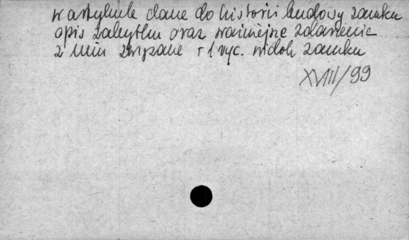 w artykule dane do historii budowy zamku
opis zabytku oraz ważniejsze zdarzenia
z nim związane + 1 ryc. widok zamku
XVIII/99